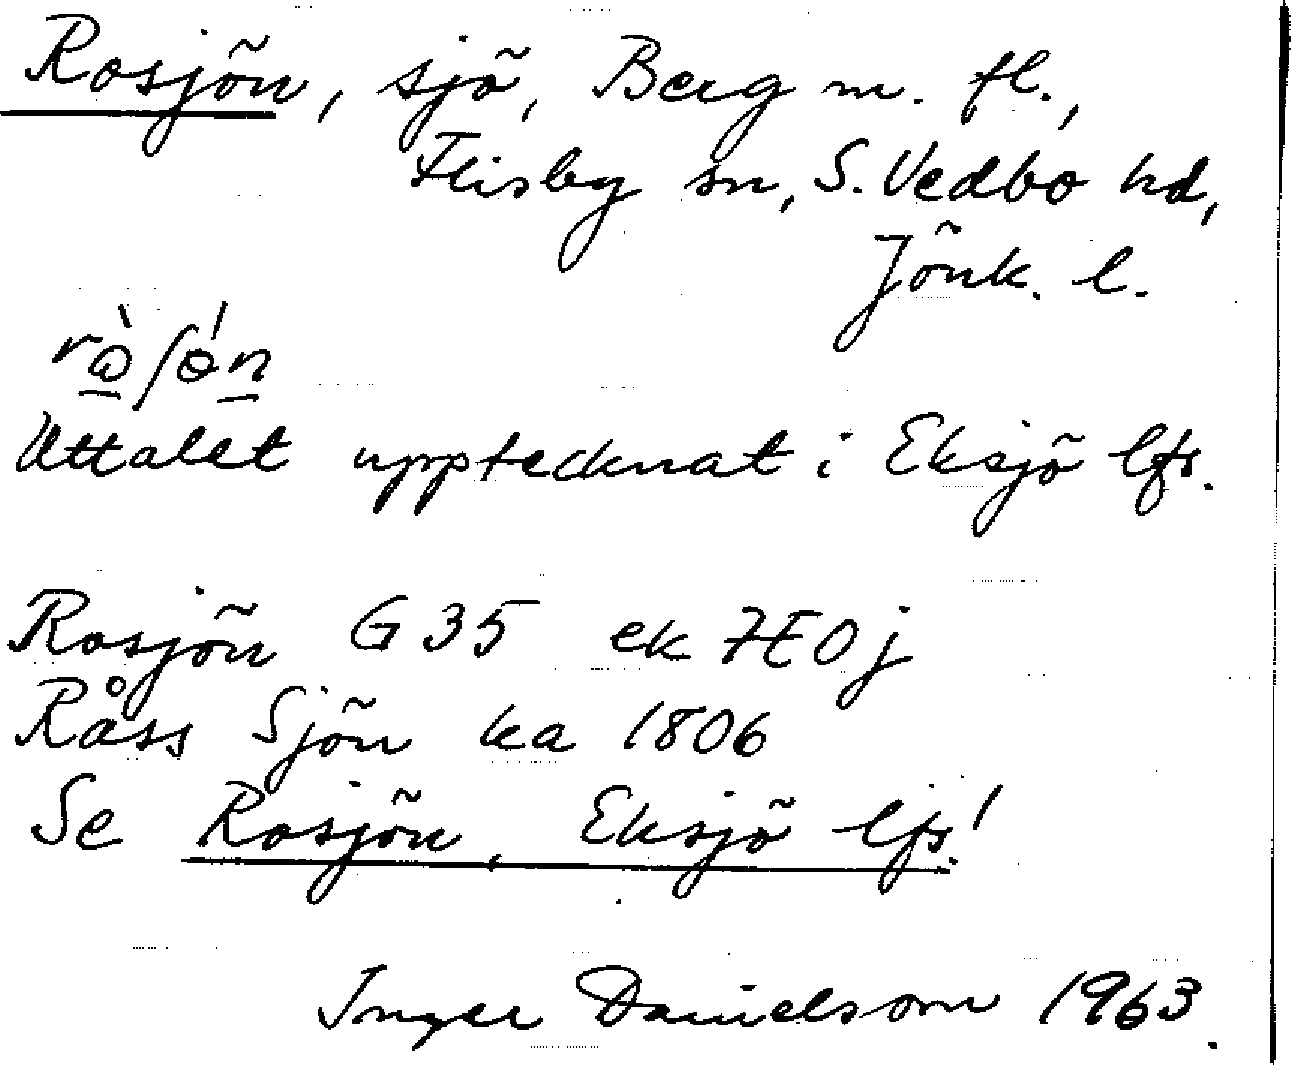 Rosjön, sjö, Berg m. fl.,
Flisby sn, S. Vedbo hd,
Jönk. l.
Uttalet upptecknat i Eksjö lfs.
Rosjön G 35 ek 7E0j
Råss Sjön ka 1806
Se Rosjön, Eksjö lfs!
Inger Danielsson 1963.